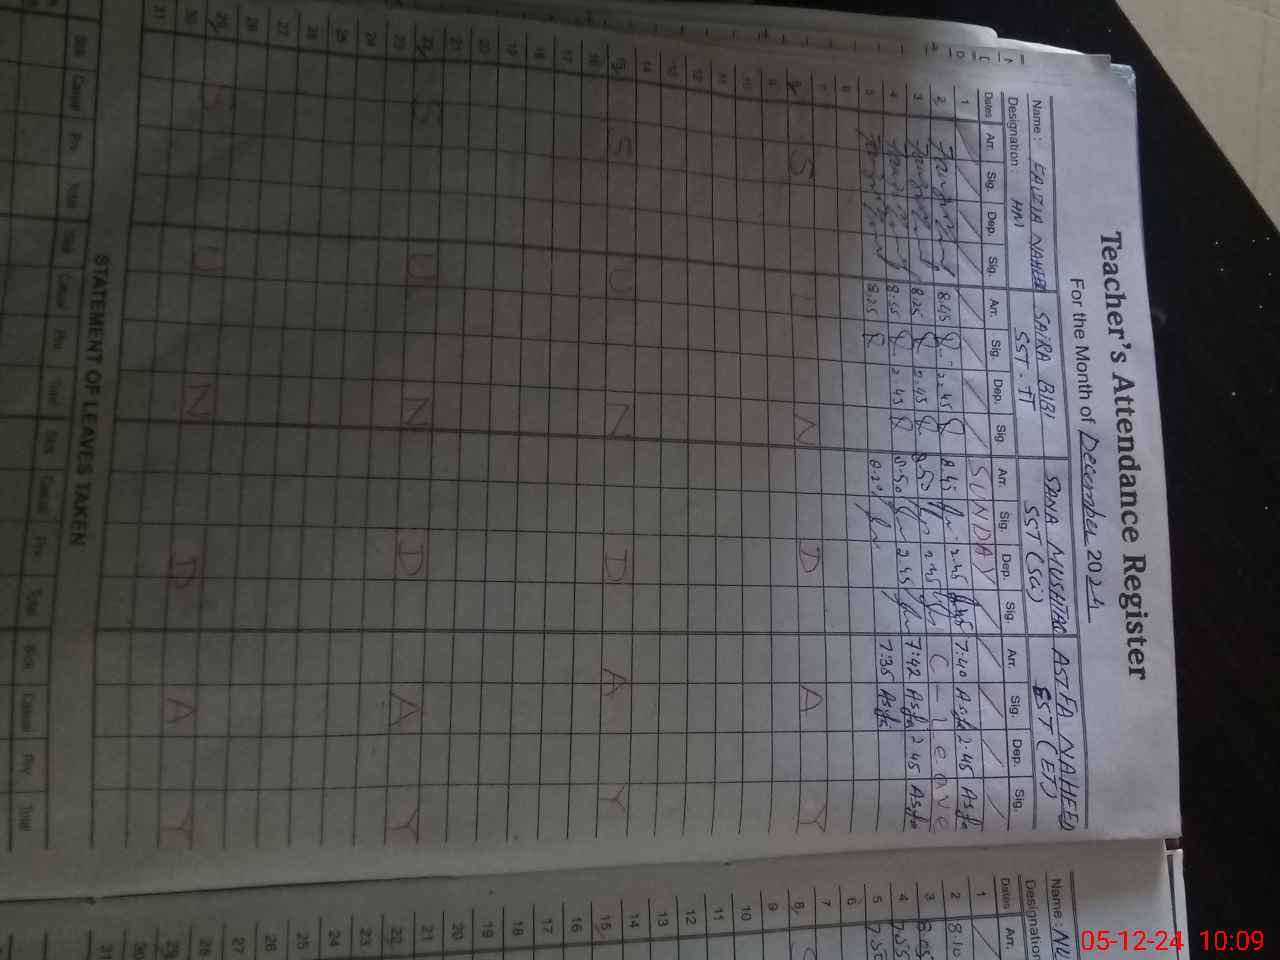 Teacher's Attendance Register
For the Month of December 2024
Name: FAUZIA NAHEED SAIRA BIBI SANA MUSHTAQ ASIFA NAHEED
Designation: HM SST-IT SST (Sci) EST (ET)
Dates Arr. Sig. Dep. Sig. Arr. Sig. Dep. Sig. Arr. Sig. Dep. Sig. Arr. Sig. Dep. Sig.
1 SUNDAY
2 8.45 2.45 8.45 2.45 7:40 Asifa 2:45 Asifa
3 8.25 2.45 8.50 2.45 C-leave
4 8:55 2.45 8.50 2.45 7:42 Asifa 2.45 Asifa
5 8.25 8.20 7:35 Asifa
6
7
8 S U N D A Y
9
10
11
12
13
14
15 S U N D A Y
16
17
18
19
20
21
22 S U N D A Y
23
24
25
26
27
28
29 S U N D A Y
30
31
STATEMENT OF LEAVES TAKEN
Sick Casual Prv Total Sick Casual Prv Total Sick Casual Prv Total Sick Casual Prv Total
Name: NU
Designation
Dates Arr.
1
2 8.10
3 8.05
4 7.55
5 7.50
6
7
8
9
10
11
12
13
14
15
16
17
18
19
20
21
22
23
24
25
26
27
28
29
30
31
05-12-24 10:09